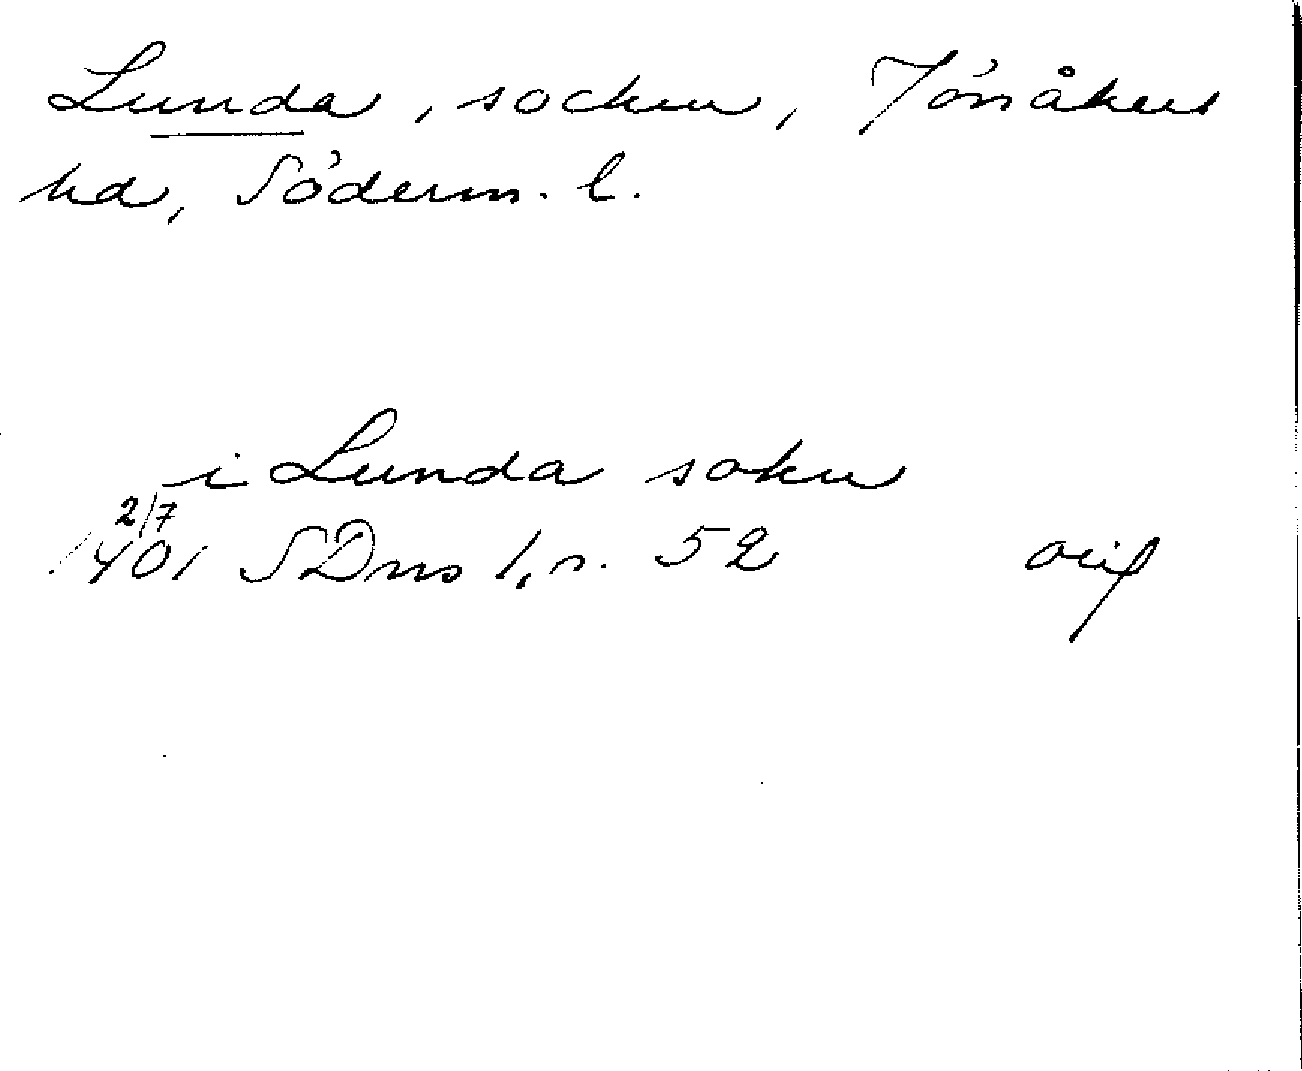 Lunda, socken, Jönåkers
hd, Söderm. l.
i Lunda sokn
2/7
1401 SDns 1, s. 52 orig